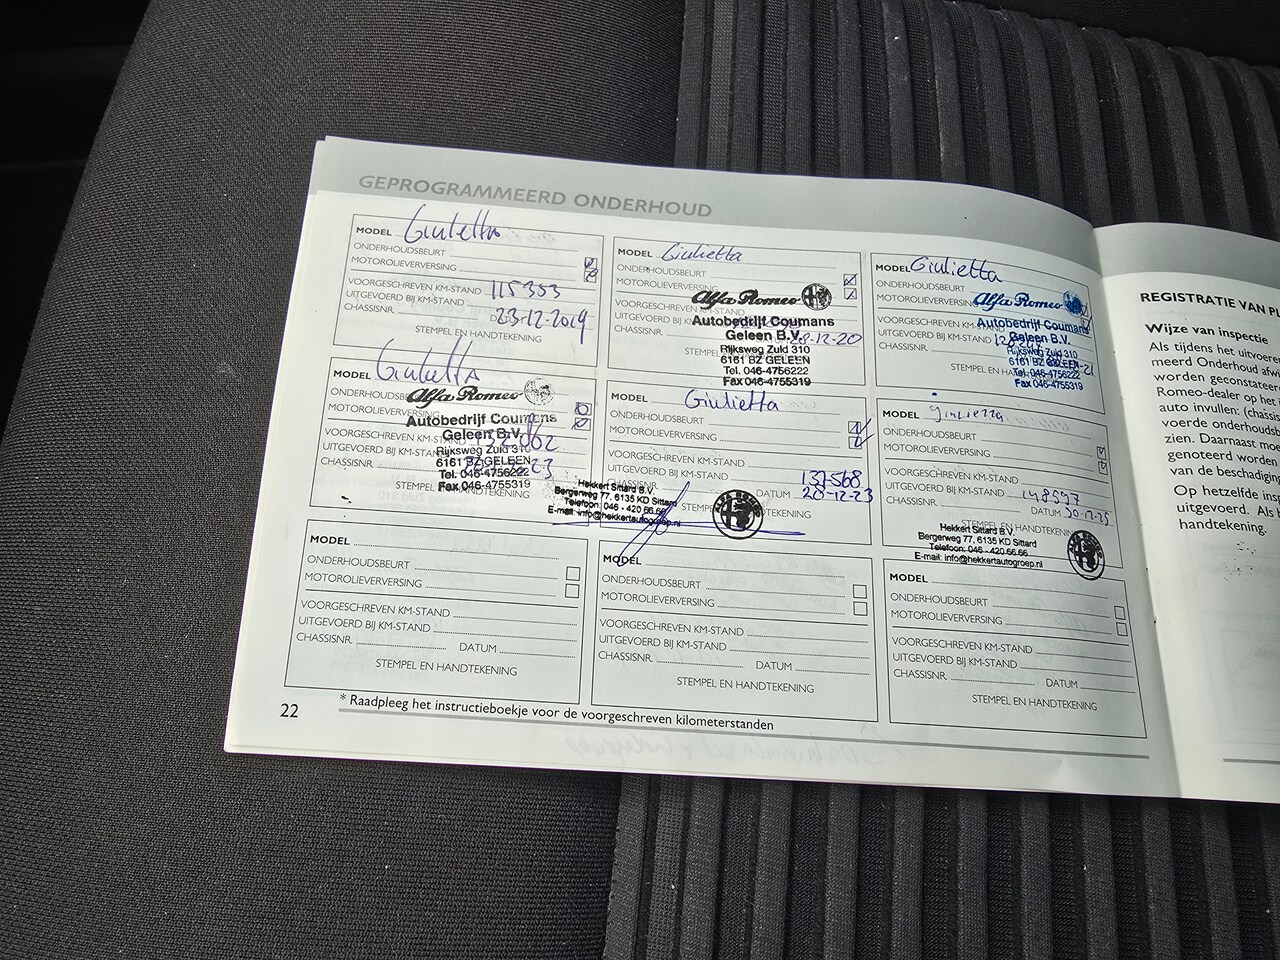 GEPROGRAMMEERD ONDERHOUD
MODEL Giulietta
ONDERHOUDSBEURT
MOTOROLIEVERVERSING
VOORGESCHREVEN KM-STAND 115353
UITGEVOERD BIJ KM-STAND
CHASSISNR. 23-12-2019
STEMPEL EN HANDTEKENING
MODEL Giulietta
ONDERHOUDSBEURT
MOTOROLIEVERVERSING
Alfa Romeo
Autobedrijf Coumans
Geleen B.V.
CHASSISNR. 8-12-20
Rijksweg Zuid 310
6161 BZ GELEEN
Tel. 046-4756222
Fax 046-4755319
MODEL Giulietta
ONDERHOUDSBEURT
MOTOROLIEVERVERSING
Alfa Romeo
VOORGESCHREVEN KM-STAND
Autobedrijf Coumans
UITGEVOERD BIJ KM-STAND
Geleen B.V.
CHASSISNR.
Rijksweg Zuid 310
6161 BZ GELEEN
Tel. 046-4756222
Fax 046-4755319
MODEL Giulietta
Alfa Romeo
MOTOROLIEVERVERSING
Autobedrijf Coumans
VOORGESCHREVEN KM-STAND
Geleen B.V.
UITGEVOERD BIJ KM-STAND
Rijksweg Zuid 310
CHASSISNR.
6161 BZ GELEEN
Tel. 046-4756222
Fax 046-4755319
HANDTEKENING
Giulietta
ONDERHOUDSBEURT
MOTOROLIEVERVERSING
VOORGESCHREVEN KM-STAND
UITGEVOERD BIJ KM-STAND 137568
DATUM 20-12-23
Hekkert Sittard B.V.
Bergerweg 77, 6135 KD Sittard
Telefoon: 046 - 420 66 66
E-mail: info@hekkertautogroep.nl
MODEL giulietta
ONDERHOUDSBEURT
MOTOROLIEVERVERSING
VOORGESCHREVEN KM-STAND
UITGEVOERD BIJ KM-STAND 148597
CHASSISNR. DATUM 30-12-25
STEMPEL EN HANDTEKENING
Hekkert Sittard B.V.
Bergerweg 77, 6135 KD Sittard
Telefoon: 046 - 420.66.66
E-mail: info@hekkertautogroep.nl
MODEL
ONDERHOUDSBEURT
MOTOROLIEVERVERSING
VOORGESCHREVEN KM-STAND
UITGEVOERD BIJ KM-STAND
CHASSISNR. DATUM
STEMPEL EN HANDTEKENING
MODEL
ONDERHOUDSBEURT
MOTOROLIEVERVERSING
VOORGESCHREVEN KM-STAND
UITGEVOERD BIJ KM-STAND
CHASSISNR. DATUM
STEMPEL EN HANDTEKENING
MODEL
ONDERHOUDSBEURT
MOTOROLIEVERVERSING
VOORGESCHREVEN KM-STAND
UITGEVOERD BIJ KM-STAND
CHASSISNR. DATUM
STEMPEL EN HANDTEKENING
* Raadpleeg het instructieboekje voor de voorgeschreven kilometerstanden
22
REGISTRATIE VAN
Wijze van inspectie
Als tijdens het
meerd Onderhoud
worden
Romeo-dealer op het
auto invullen:
voerde
zien. Daarnaast
genoteerd worden
van de
Op hetzelfde
uitgevoerd. Als
handtekening.